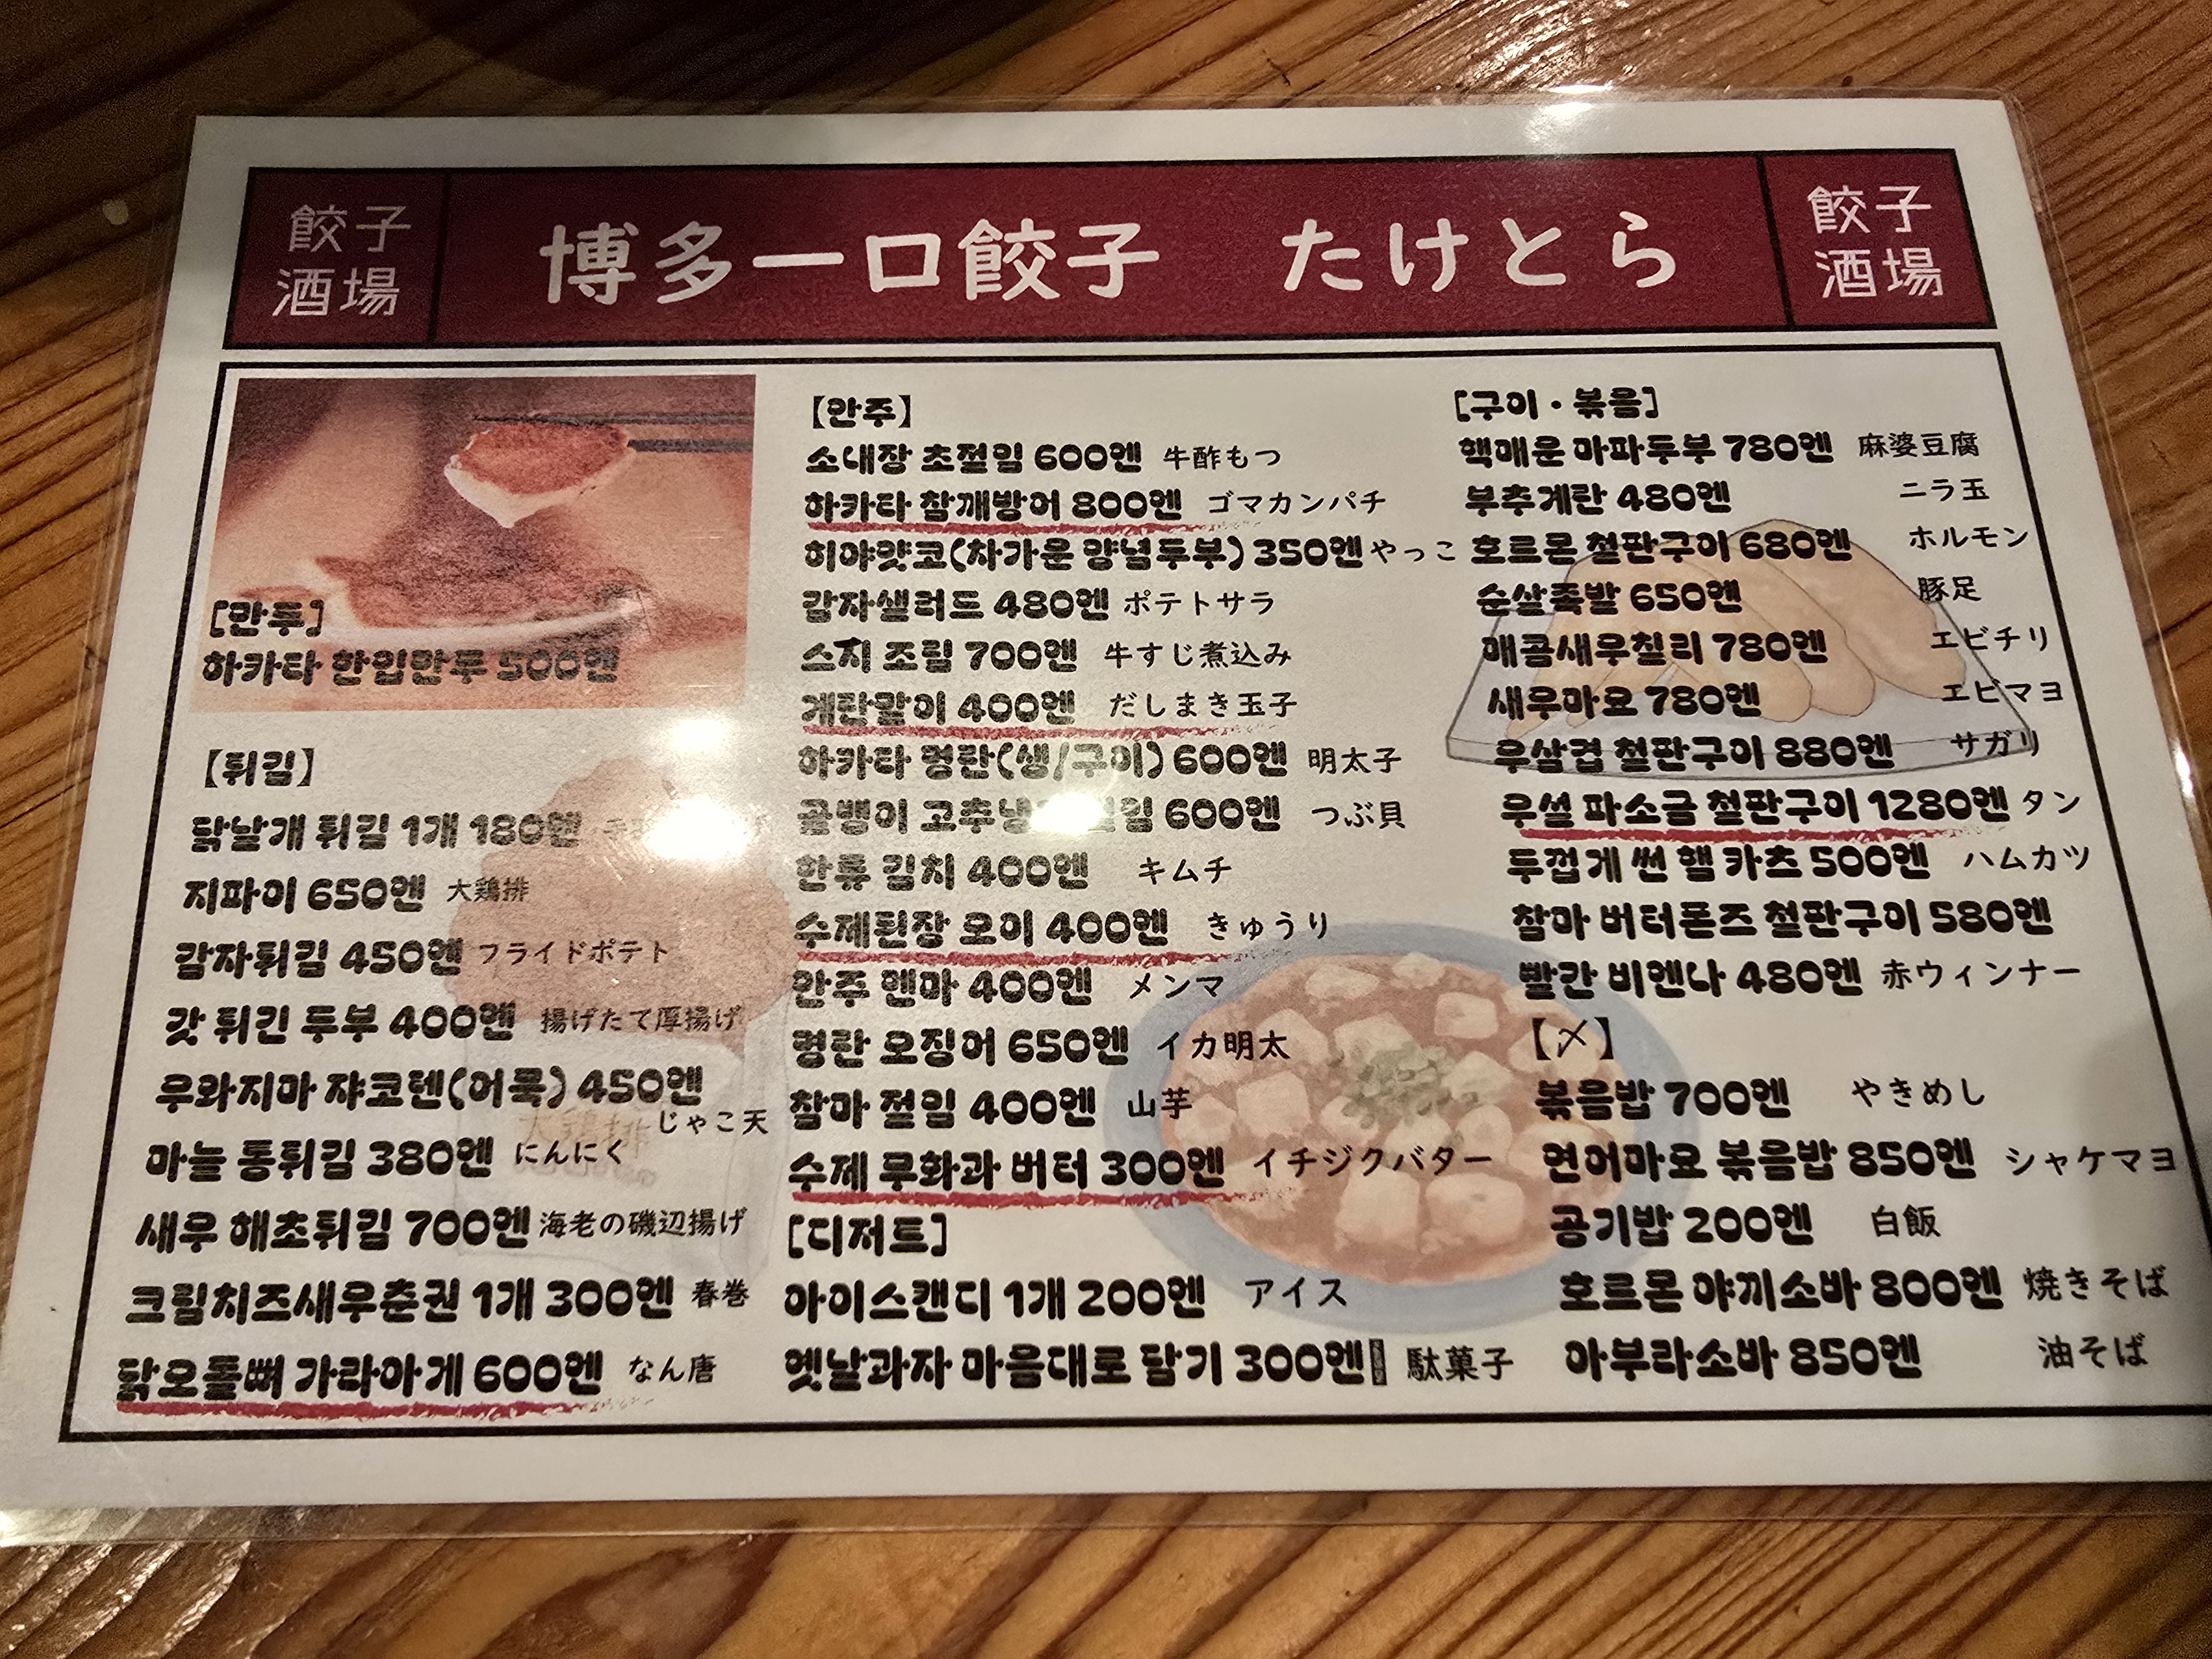 餃子
酒場
博多一口餃子 たけとら
餃子
酒場
[만두]
하카타 한입만두 500엔
【튀김】
닭날개 튀김 1개 180엔
지파이 650엔 大鶏排
감자튀김 450엔 フライドポテト
갓 튀긴 두부 400엔 揚げたて厚揚げ
우와지마 쟈코텐(어묵) 450엔
じゃこ天
마늘 통튀김 380엔 にんにく
새우 해초튀김 700엔 海老の磯辺揚げ
크림치즈새우춘권 1개 300엔 春巻
닭오돌뼈 가라아게 600엔 なん唐
【안주】
소내장 초절임 600엔 牛酢もつ
하카타 참깨방어 800엔 ゴマカンパチ
히야얏코(차가운 양념두부) 350엔 やっこ
감자샐러드 480엔 ポテトサラ
스지 조림 700엔 牛すじ煮込み
계란말이 400엔 だしまき玉子
하카타 명란(생/구이) 600엔 明太子
골뱅이 600엔 つぶ貝
한류 김치 400엔 キムチ
수제된장 오이 400엔 きゅうり
안주 멘마 400엔 メンマ
명란 오징어 650엔 イカ明太
참마 절임 400엔 山芋
수제 무화과 버터 300엔 イチジクバター
[디저트]
아이스캔디 1개 200엔 アイス
옛날과자 마음대로 담기 300엔 駄菓子
[구이・볶음]
핵매운 마파두부 780엔 麻婆豆腐
부추계란 480엔 ニラ玉
호르몬 철판구이 680엔 ホルモン
순살족발 650엔 豚足
매콤새우칠리 780엔 エビチリ
새우마요 780엔 エビマヨ
우삼겹 철판구이 880엔 サガリ
우설 파소금 철판구이 1280엔 タン
두껍게 썬 햄 카츠 500엔 ハムカツ
참마 버터폰즈 철판구이 580엔
빨칸 비엔나 480엔 赤ウィンナー
【〆】
볶음밥 700엔 やきめし
연어마요 볶음밥 850엔 シャケマヨ
공기밥 200엔 白飯
호르몬 야끼소바 800엔 焼きそば
아부라소바 850엔 油そば